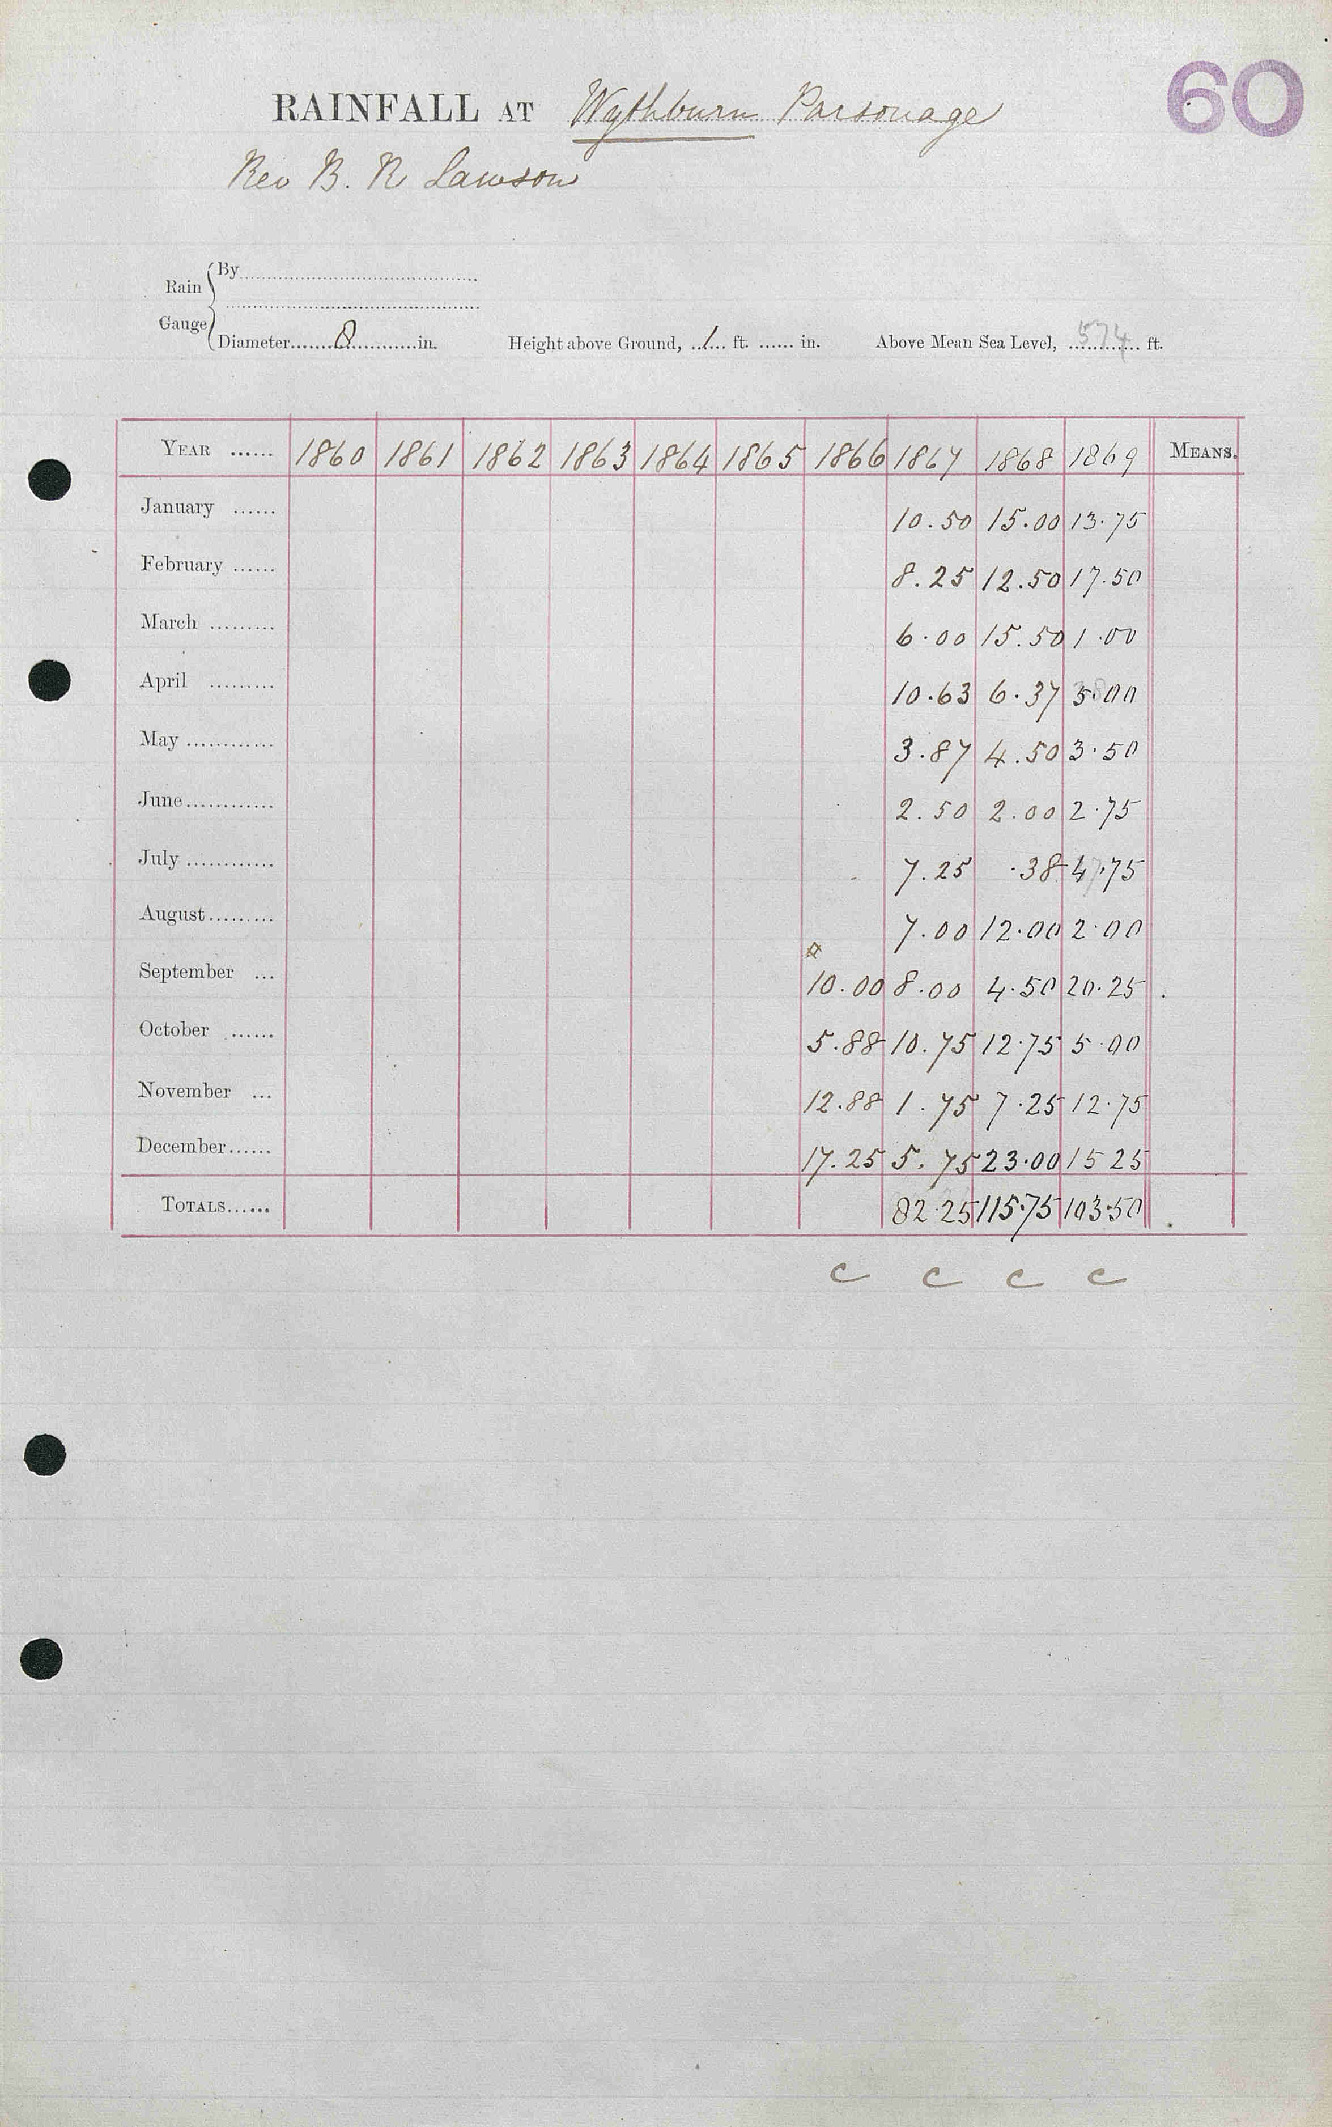 60
RAINFALL AT Wythburn Parsonage
Rev B. R Lawson
Rain Gauge
By
Diameter 8 in. Height above Ground, 1 ft. in. Above Mean Sea Level, 574 ft.
YEAR 1860 1861 1862 1863 1864 1865 1866 1867 1868 1869 MEANS.
January 10.50 15.00 13.75
February 8.25 12.50 17.50
March 6.00 15.50 1.00
April 10.63 6.37 5.00
May 3.87 4.50 3.50
June 2.50 2.00 2.75
July 7.25 .38 4.75
August 7.00 12.00 2.00
September 10.00 8.00 4.50 20.25
October 5.88 10.75 12.75 5.00
November 12.88 1.75 7.25 12.75
December 17.25 5.75 23.00 15 25
TOTALS 82.25 115.75 103.50
c c c c